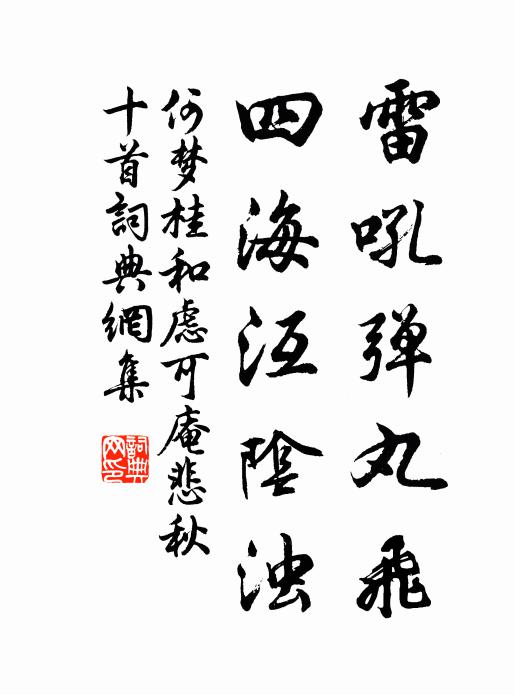 雷吼弹丸飛
四海沍陰浊
何梦桂和慮可庵悲秋
十首詞典網集
詞典网印